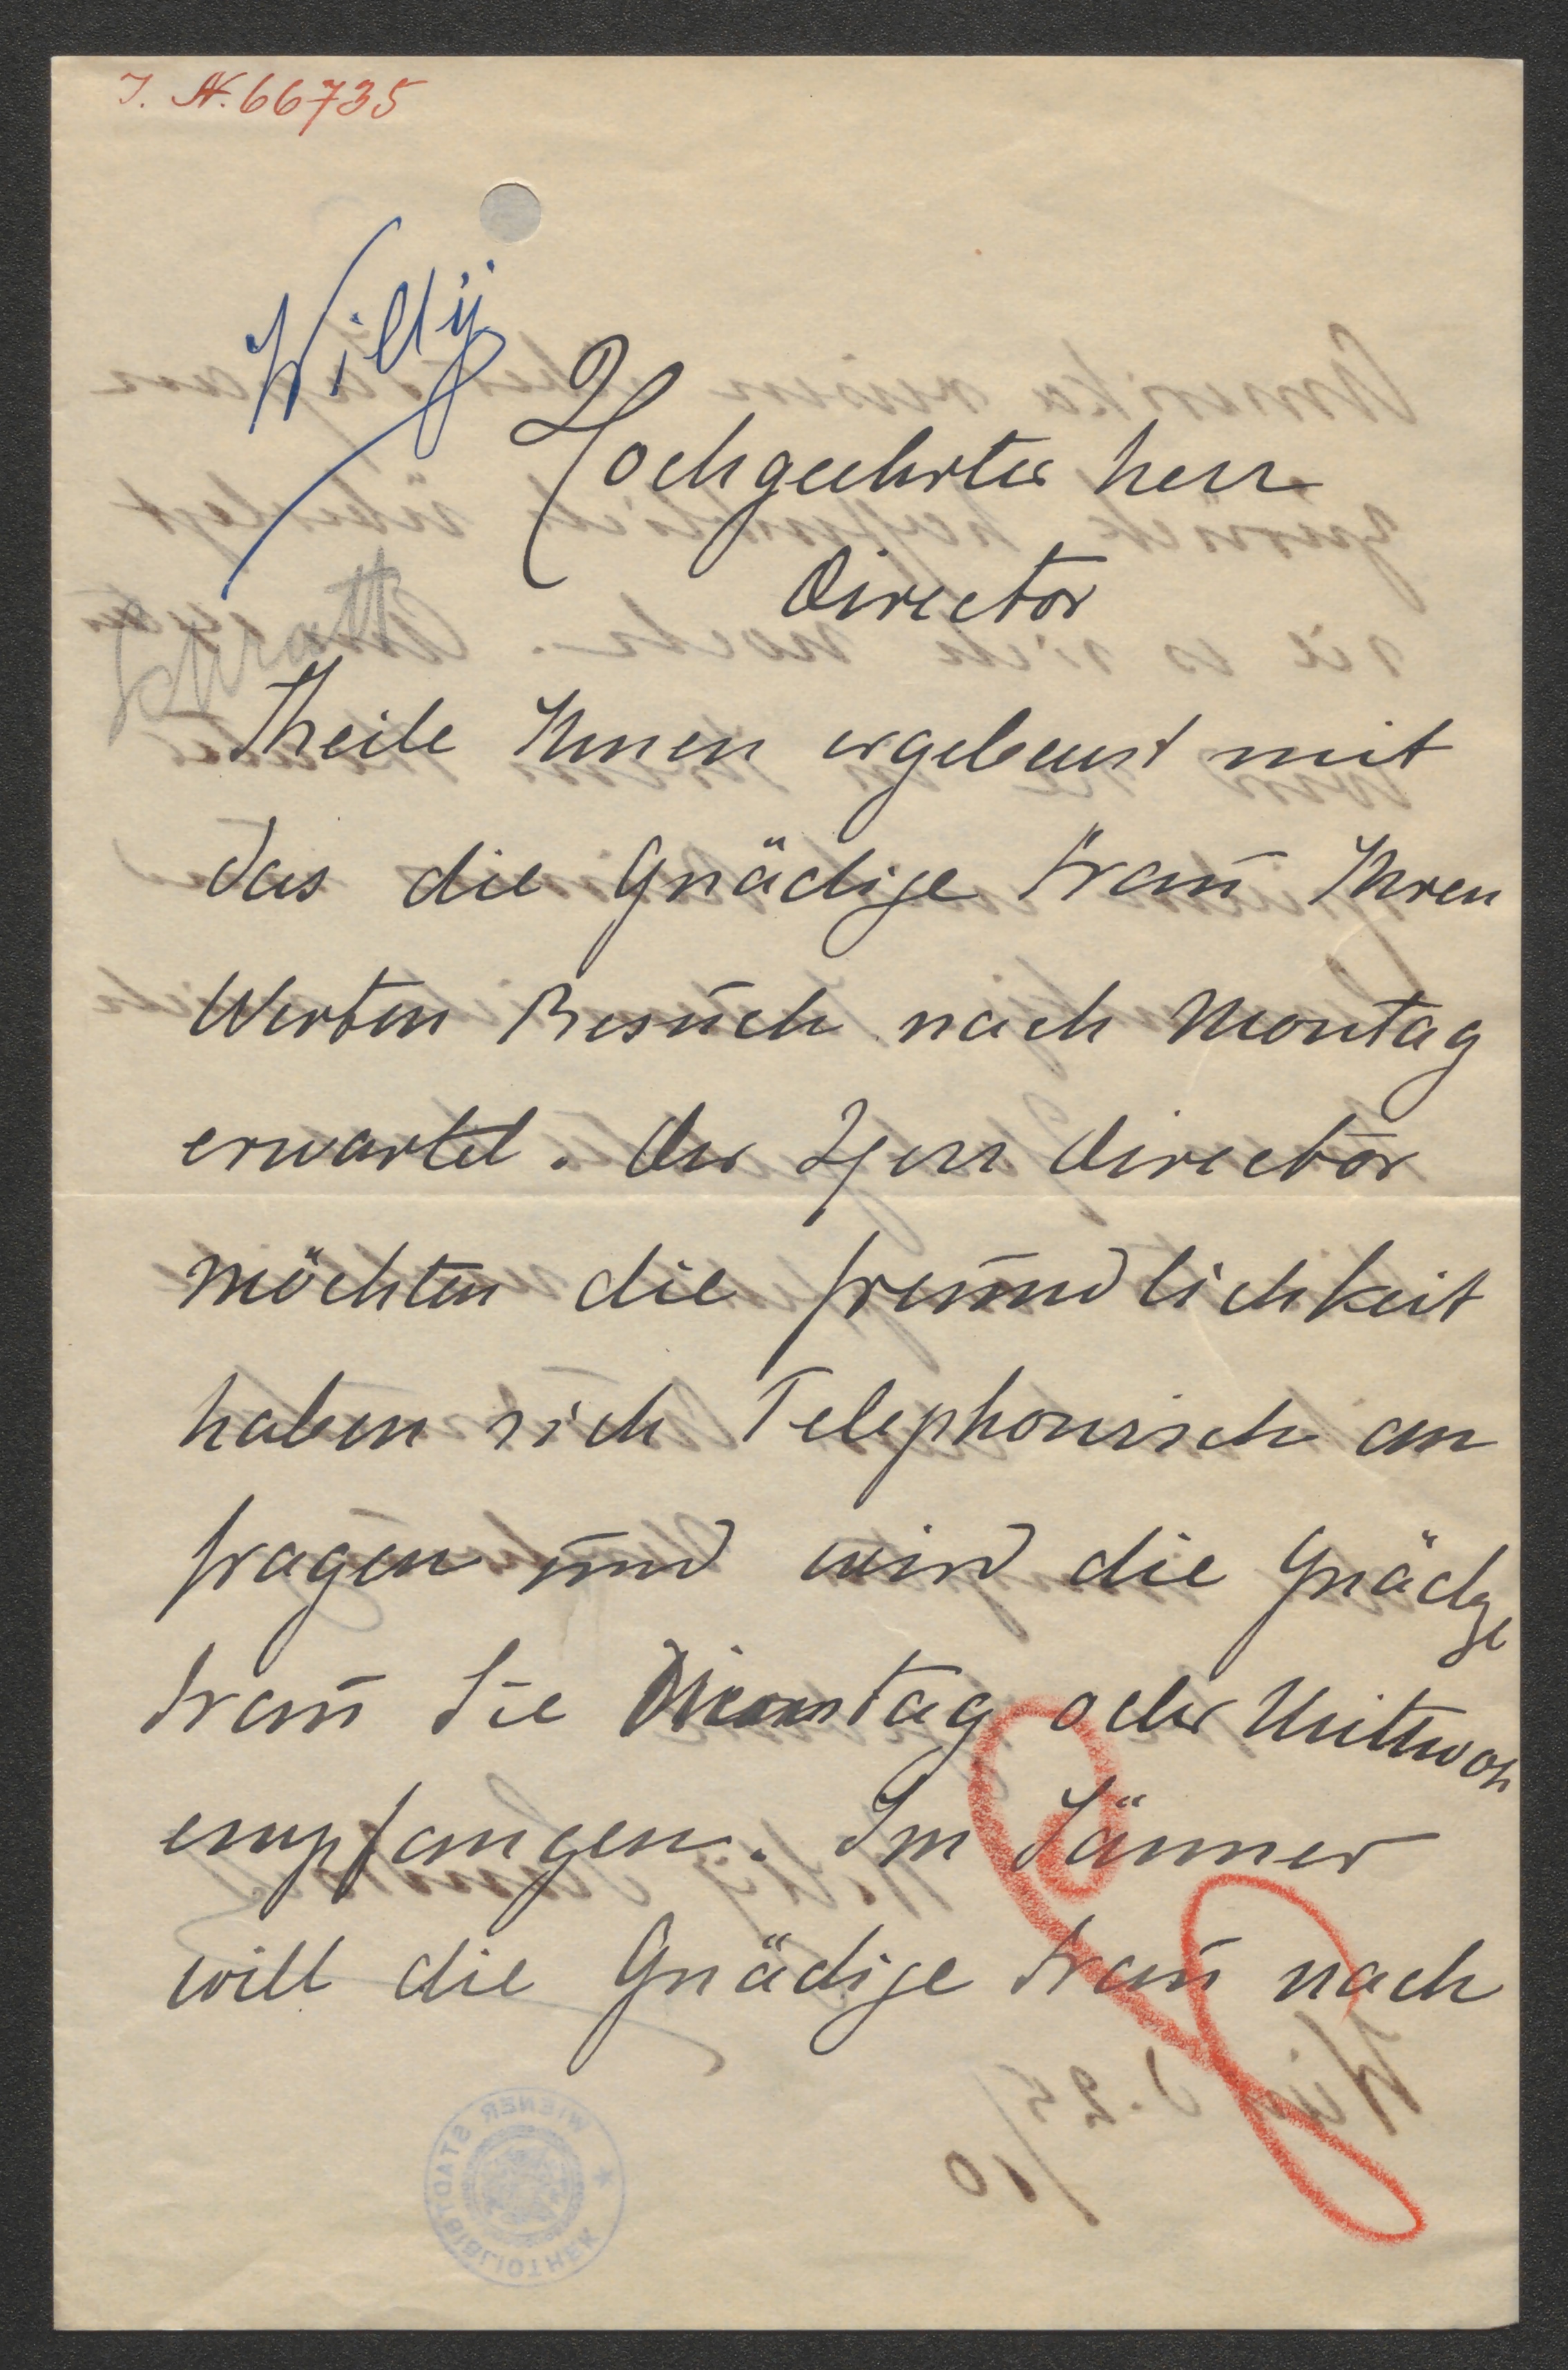 J. N. 66735
Willy
Hochgeehrter herr
Director
Schratt
Theile Ihnen ergebenst mit
das die Gnädige Frau Ihren
Werten Besuch nach Montag
erwartet. Der Herr Director
möchten die freundlichkeit
haben sich Telephonisch an
fragen und wird die Gnädge
Frau Sie Dienstag oder Mittwoch
empfangen. Im Jänner
will die Gnädige Frau nach
WIENER STADTBIBLIOTHEK